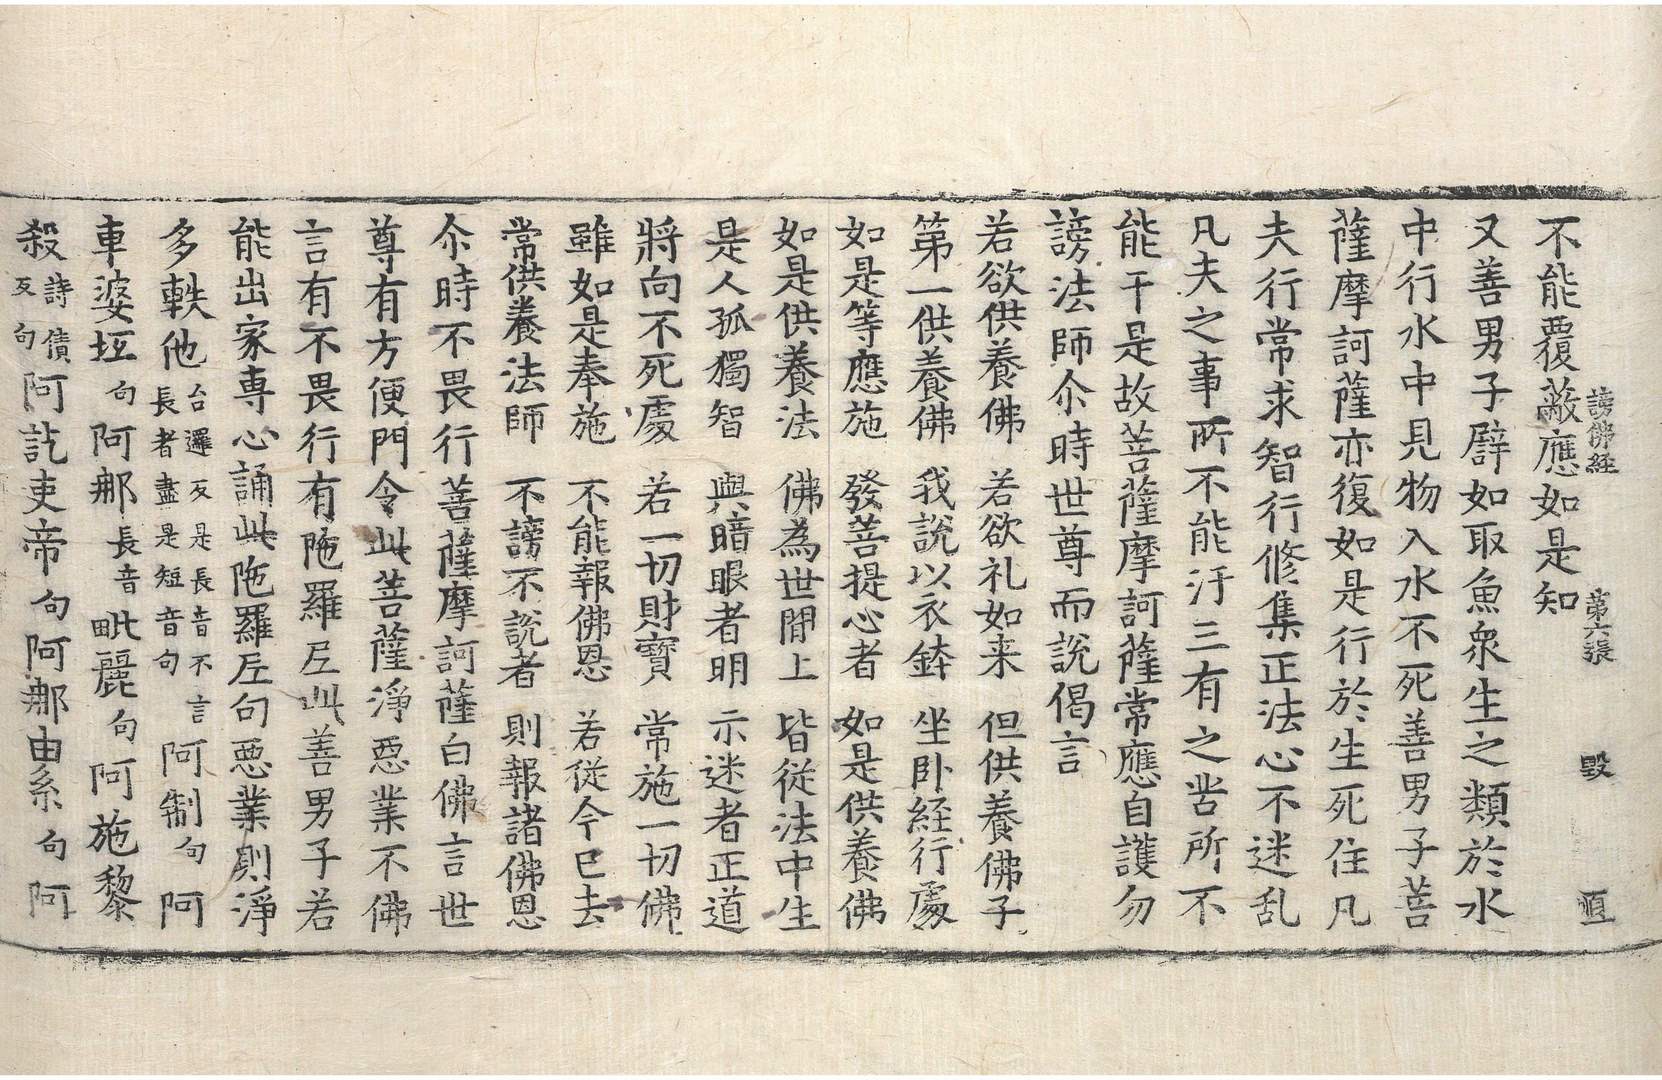 謗佛経　第六張　毀
不能覆蔽應如是知
又善男子辟如取魚衆生之類於水
中行水中見物入水不死善男子菩
薩摩訶薩亦復如是行於生死住凡
夫行常求智行修集正法心不迷乱
凡夫之事所不能汙三有之苦所不
能干是故菩薩摩訶薩常應自護勿
謗法師尒時世尊而說偈言
若欲供養佛　若欲礼如来　但供養佛子
第一供養佛　我說以衣鉢　坐卧経行處
如是等應施　發菩提心者　如是供養佛
如是供養法　佛為世間上　皆從法中生
是人孤獨智　與暗眼者明　示迷者正道
將向不死處　若一切財寶　常施一切佛
雖如是奉施　不能報佛恩　若從今已去
常供養法師　不謗不說者　則報諸佛恩
尒時不畏行菩薩摩訶薩白佛言世
尊有方便門令此菩薩淨惡業不佛
言有不畏行有陁羅𡰱此善男子若
能出家専心誦此陁羅𡰱句惡業則淨
多軼他台邏反是長音不言長者盡是短音句阿制句阿
車婆𡊠句阿那長音毗麗句阿施黎
殺詩債反句阿訖吏帝句阿那由系句阿